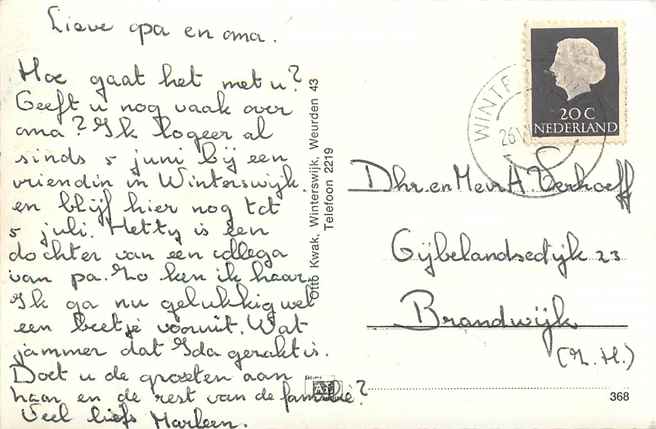 Lieve opa en oma.
Hoe gaat het met u?
Geeft u nog vaak over
oma? Ik logeer al
sinds 5 juni bij een
vriendin in Winterswijk.
en blijf hier nog tot
5 juli. Hetty is een
dochter van een collega
van pa. Zo ken ik haar.
Ik ga nu gelukkig wel
een beetje vooruit. Wat
jammer dat Ida gezakt is.
Doet u de groeten aan
haar en de rest van de familie?
Veel liefs Marleen.
Otto Kwak, Winterswijk, Weurden 43
Telefoon 2219
WINTE
20 C
NEDERLAND
Dhr. en Mevr. A. Verhoeff
Gijbelandsedijk 23
Brandwijk
(Z. H.)
368